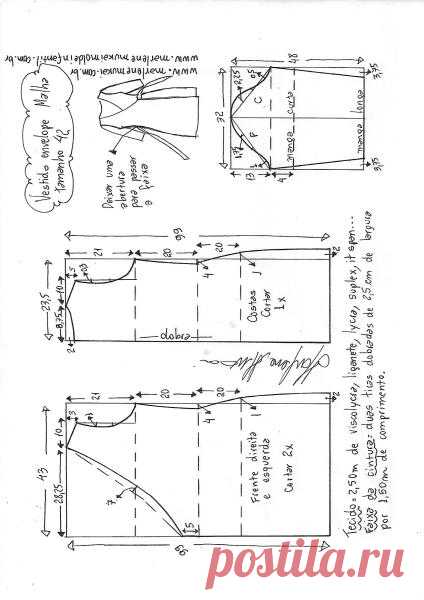 www.marlenemukai.com.br
www.marlenemukaimoldeinfantil.com.br
Vestido envelope Malha
tamanho 42
Deixar uma
abertura
para passar
a faixa
48
3,75
3,75
32
2,25
0,5
C
F
1,75
13
4
manga curta
manga longa
99
21
20
20
23,5
8,75
10
3
2
4
1
2
Costas
Cortar
1x
dobra
21
20
20
43
28,25
10
3
1
7
5
4
1
2
99
Frente direita
e esquerda
Cortar 2x
Tecido = 2,50m de viscolycra, liganete, lycra, suplex, it span...
Faixa da cintura: duas tiras dobradas de 2,5cm de largura
por 1,50m de comprimento.
postila.ru